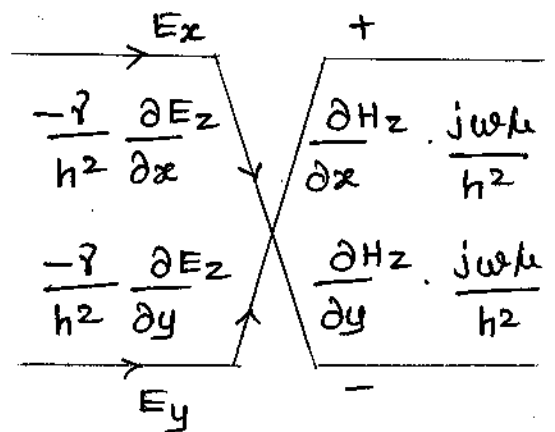 Ex +
-γ/h² ∂Ez/∂x ∂Hz/∂x · jωμ/h²
-γ/h² ∂Ez/∂y ∂Hz/∂y · jωμ/h²
Ey -